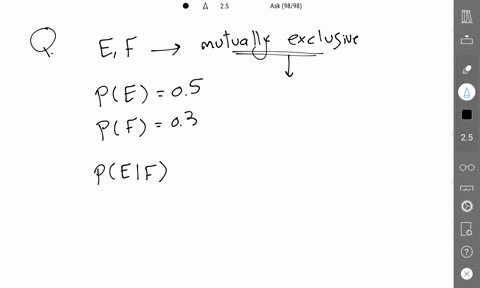 2.5 Ask (98/98)
Q. E, F → mutually exclusive
P(E) = 0.5
P(F) = 0.3
P(E|F)
2.5